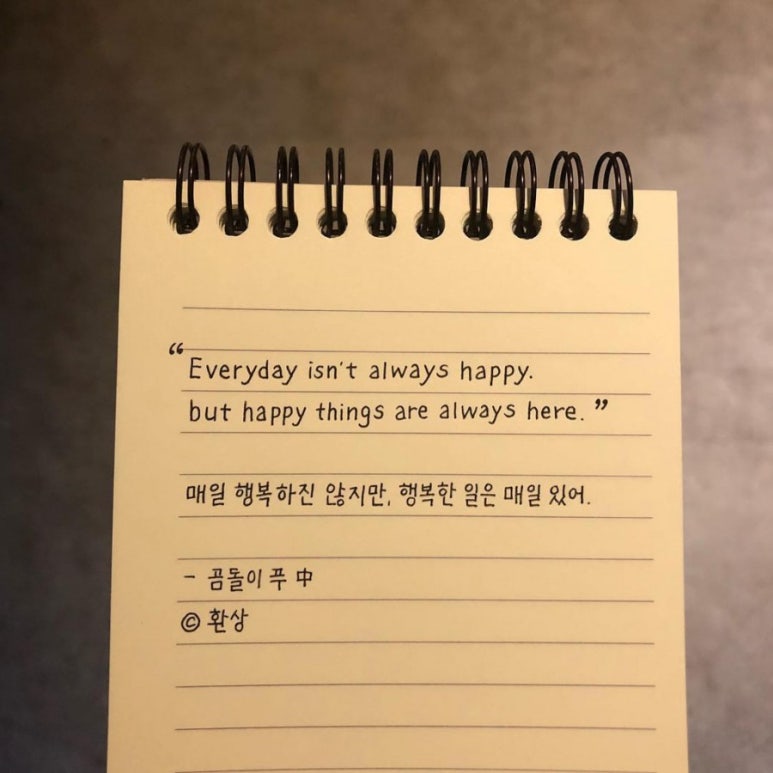 “Everyday isn't always happy.
but happy things are always here.”
매일 행복하진 않지만, 행복한 일은 매일 있어.
- 곰돌이 푸 中
© 환상